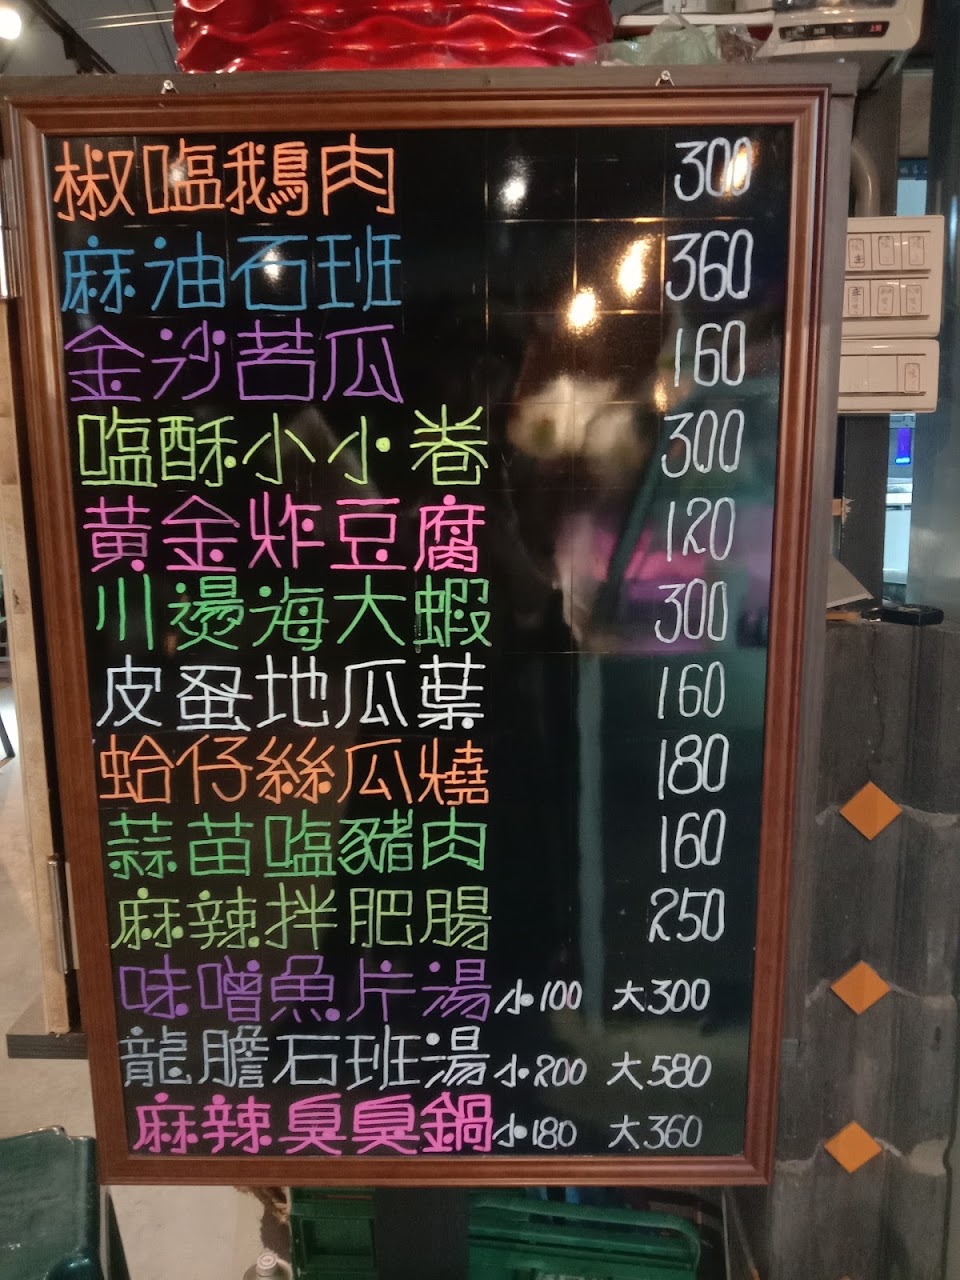 椒塩鵝肉 300
麻油石班 360
金沙苦瓜 160
塩酥小小卷 300
黃金炸豆腐 120
川燙海大蝦 300
皮蛋地瓜葉 160
蛤仔絲瓜燒 180
蒜苗塩豬肉 160
麻辣拌肥腸 250
味噌魚片湯 小100 大300
龍膽石班湯 小200 大580
麻辣臭臭鍋 小180 大360